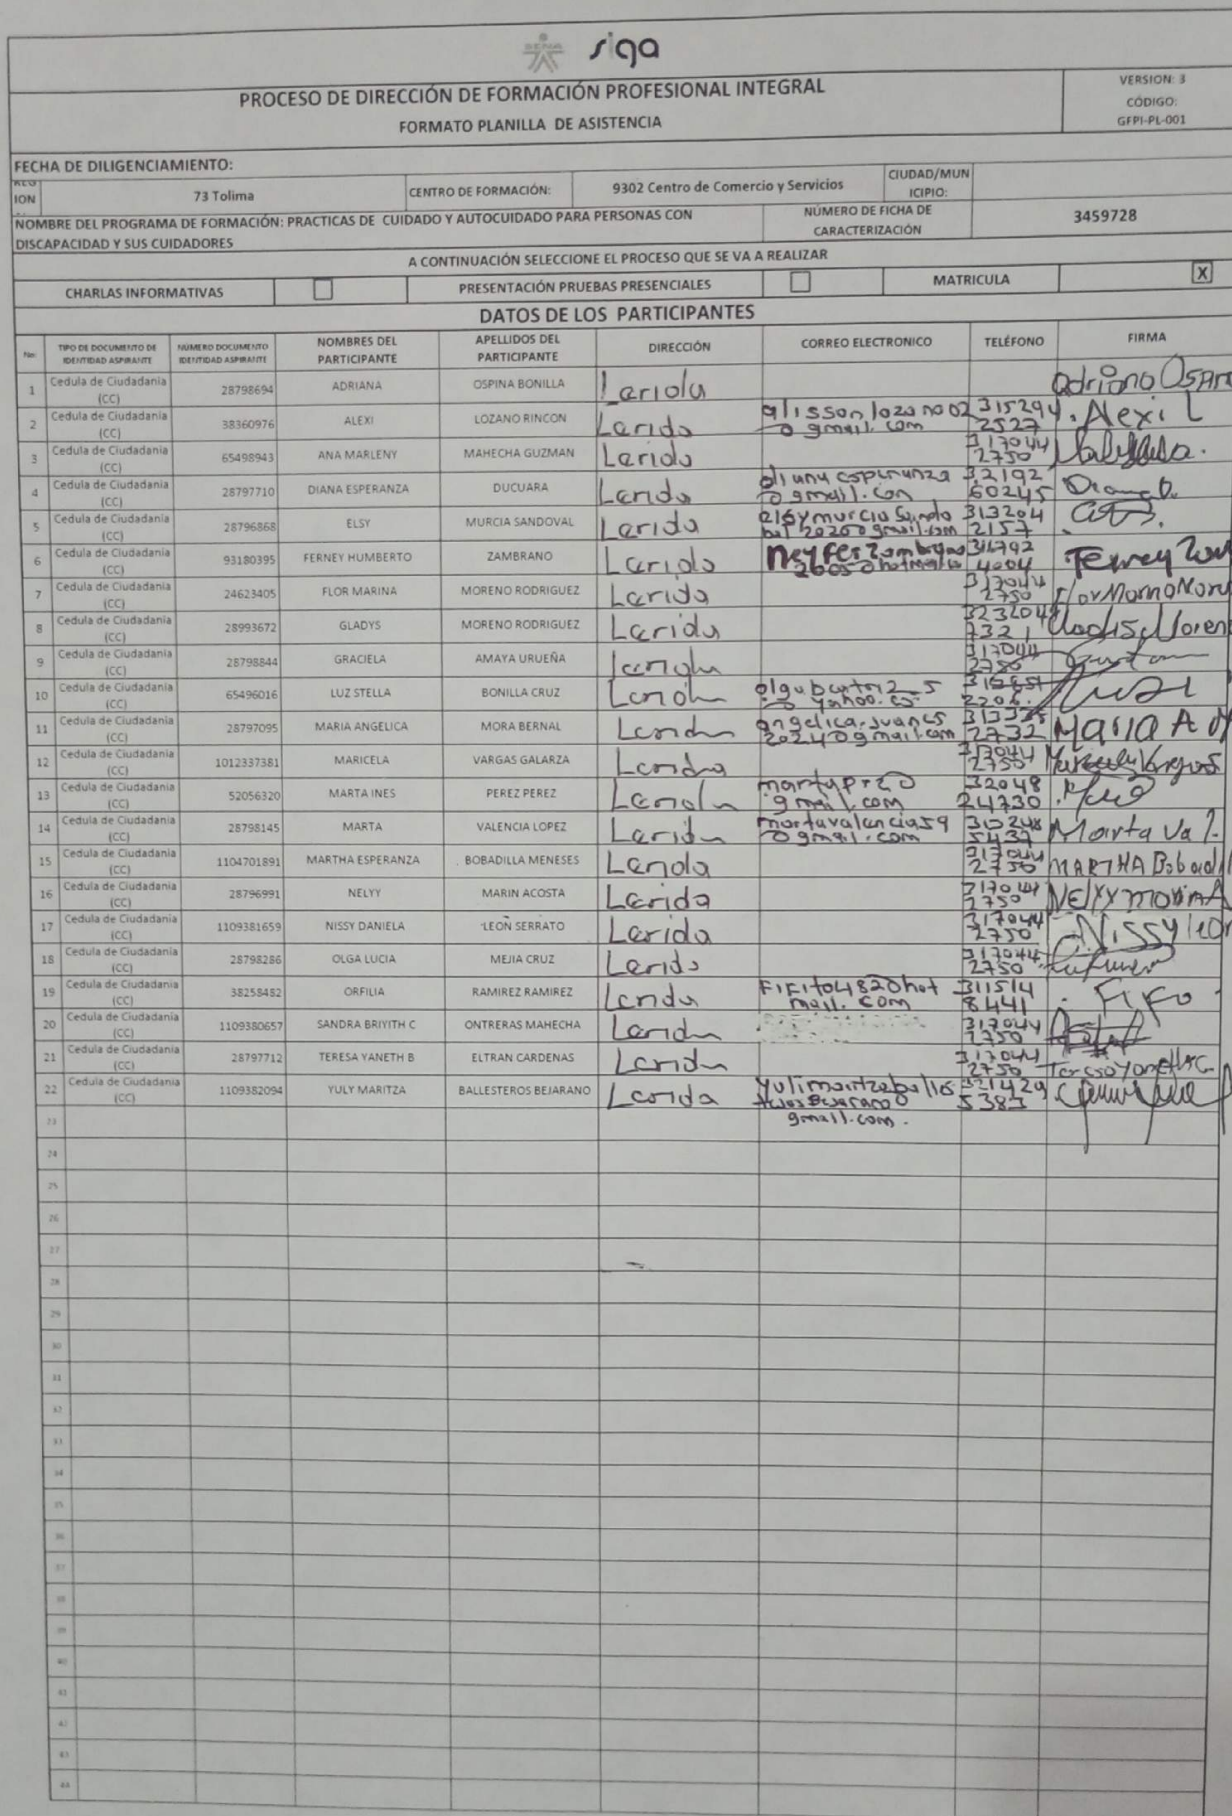 SENA siga
PROCESO DE DIRECCIÓN DE FORMACIÓN PROFESIONAL INTEGRAL
FORMATO PLANILLA DE ASISTENCIA
VERSION: 3
CÓDIGO:
GFPI-PL-001
FECHA DE DILIGENCIAMIENTO:
REG
ION 73 Tolima CENTRO DE FORMACIÓN: 9302 Centro de Comercio y Servicios CIUDAD/MUN
ICIPIO:
NOMBRE DEL PROGRAMA DE FORMACIÓN: PRACTICAS DE CUIDADO Y AUTOCUIDADO PARA PERSONAS CON
DISCAPACIDAD Y SUS CUIDADORES
NÚMERO DE FICHA DE
CARACTERIZACIÓN
3459728
A CONTINUACIÓN SELECCIONE EL PROCESO QUE SE VA A REALIZAR
CHARLAS INFORMATIVAS PRESENTACIÓN PRUEBAS PRESENCIALES MATRICULA X
DATOS DE LOS PARTICIPANTES
No: TIPO DE DOCUMENTO DE IDENTIDAD ASPIRANTE NÚMERO DOCUMENTO IDENTIDAD ASPIRANTE NOMBRES DEL PARTICIPANTE APELLIDOS DEL PARTICIPANTE DIRECCIÓN CORREO ELECTRONICO TELÉFONO FIRMA
1 Cedula de Ciudadania (CC) 28798694 ADRIANA OSPINA BONILLA Lerida
2 Cedula de Ciudadania (CC) 38360976 ALEXI LOZANO RINCON Lerida alissonlozano02 @gmail.com 315294 2527 Alexi L
3 Cedula de Ciudadania (CC) 65498943 ANA MARLENY MAHECHA GUZMAN Lerida 317044 2750
4 Cedula de Ciudadania (CC) 28797710 DIANA ESPERANZA DUCUARA Lerida 32192 60245
5 Cedula de Ciudadania (CC) 28796868 ELSY MURCIA SANDOVAL Lerida 313204 2157
6 Cedula de Ciudadania (CC) 93180395 FERNEY HUMBERTO ZAMBRANO Lerida 4004
7 Cedula de Ciudadania (CC) 24623405 FLOR MARINA MORENO RODRIGUEZ Lerida 317044 2750
8 Cedula de Ciudadania (CC) 28993672 GLADYS MORENO RODRIGUEZ Lerida 323204 7321
9 Cedula de Ciudadania (CC) 28798844 GRACIELA AMAYA URUEÑA Lerida 317044 2750
10 Cedula de Ciudadania (CC) 65496016 LUZ STELLA BONILLA CRUZ Lerida 2206
11 Cedula de Ciudadania (CC) 28797095 MARIA ANGELICA MORA BERNAL Lerida angelica.juanes 2024@gmail.com 2732 Maria A M
12 Cedula de Ciudadania (CC) 1012337381 MARICELA VARGAS GALARZA Lerida 317044 2750
13 Cedula de Ciudadania (CC) 52056320 MARTA INES PEREZ PEREZ Lerida 32048 24730
14 Cedula de Ciudadania (CC) 28798145 MARTA VALENCIA LOPEZ Lerida martavalencia59 @gmail.com 5437 Marta Val.
15 Cedula de Ciudadania (CC) 1104701891 MARTHA ESPERANZA BOBADILLA MENESES Lerida 317044 2750 MARTHA Bobadil
16 Cedula de Ciudadania (CC) 28796991 NELYY MARIN ACOSTA Lerida 317044 2750 NELYY marin A
17 Cedula de Ciudadania (CC) 1109381659 NISSY DANIELA LEON SERRATO Lerida 317044 2750 Nissy leon
18 Cedula de Ciudadania (CC) 28798286 OLGA LUCIA MEJIA CRUZ Lerida 317044 2750
19 Cedula de Ciudadania (CC) 38258482 ORFILIA RAMIREZ RAMIREZ Lerida Fifito482@hot mail.com 311514 8441 FIFO
20 Cedula de Ciudadania (CC) 1109380657 SANDRA BRIYITH C ONTRERAS MAHECHA Lerida 317044 2750
21 Cedula de Ciudadania (CC) 28797712 TERESA YANETH B ELTRAN CARDENAS Lerida 317044 2750
22 Cedula de Ciudadania (CC) 1109382094 YULY MARITZA BALLESTEROS BEJARANO Lerida gmail.com. 321429 5383
23
24
25
26
27
28
29
30
31
32
33
34
35
36
37
38
39
40
41
42
43
44